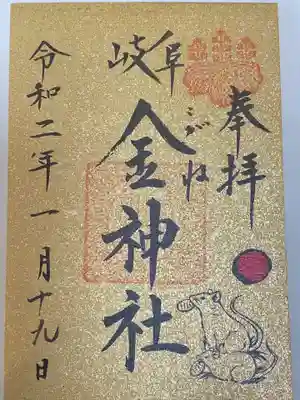 奉拝
岐阜
金神社
こがね
令和二年一月十九日